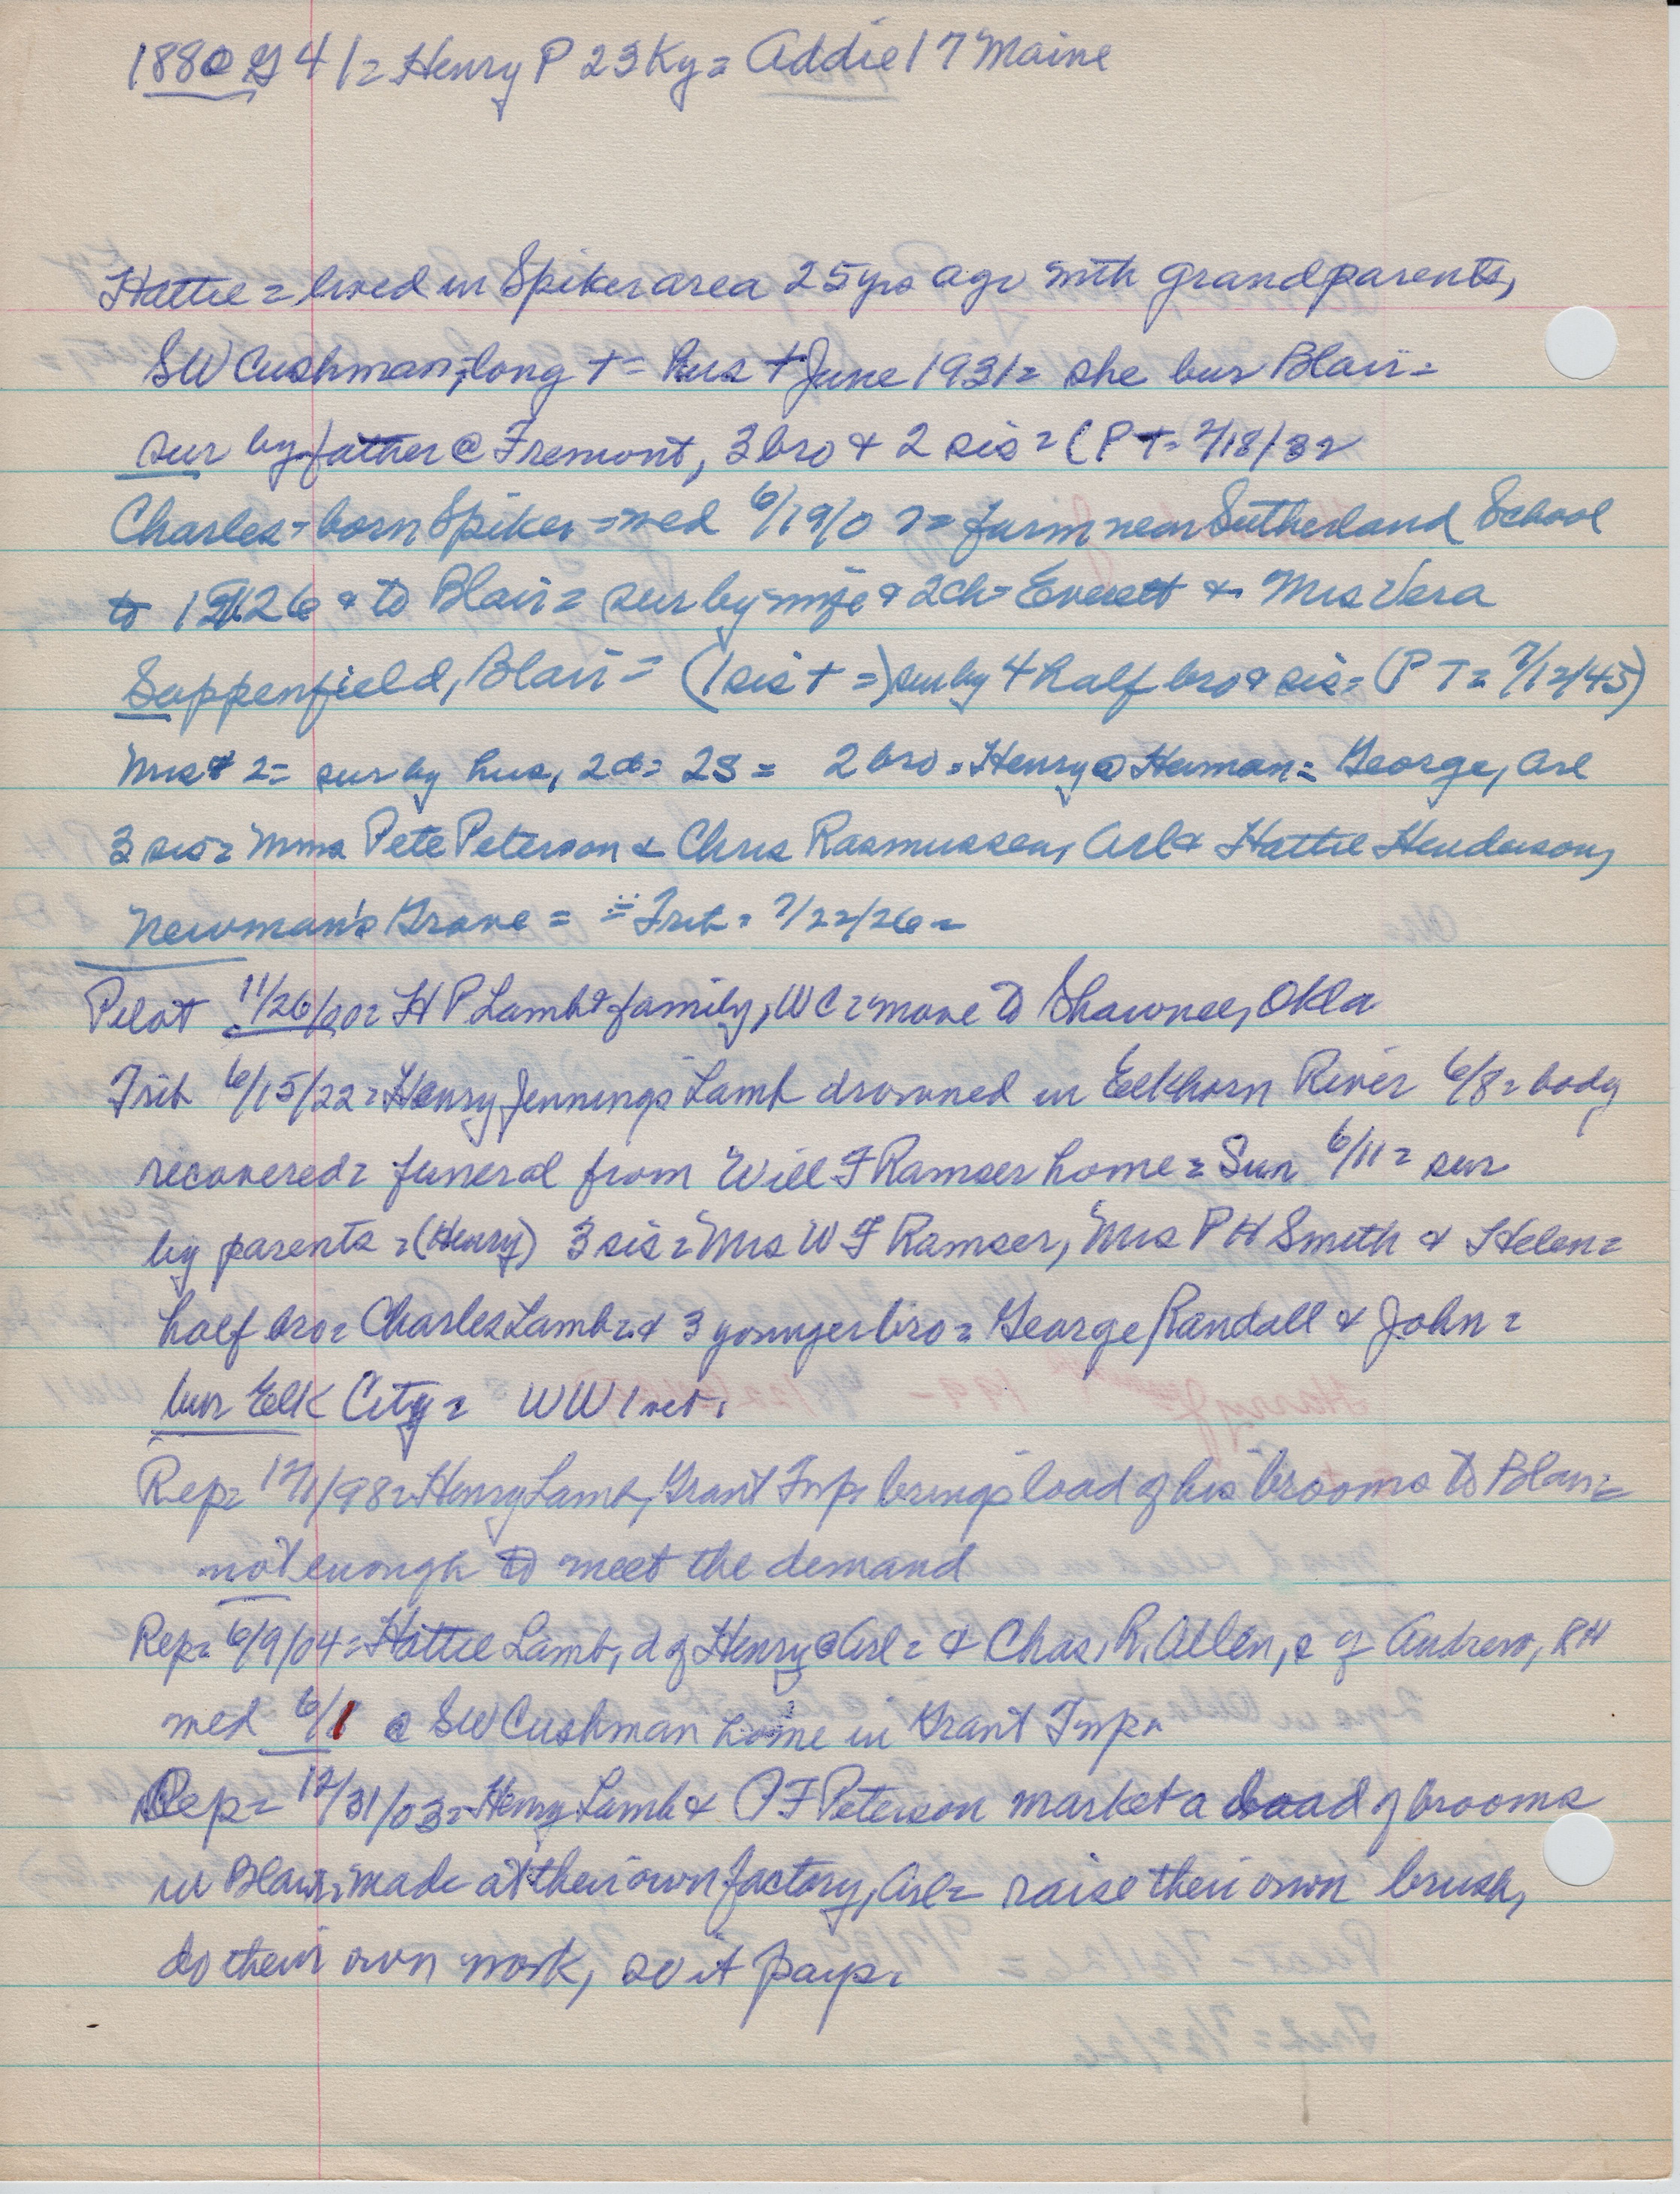 1880 G 41= Henry P 23 Ky = Addie 17 Maine
Hattie = lived in Spiker area 25 yrs ago with grandparents,
SW Cushman, long + = hus + June 1931 = she bur Blair =
sur by father @ Fremont, 3 bro & 2 sis = (PT =
Charles = born Spiker = med farm near Sutherland School
to 1926 & to Blair = sur by wife & 2 ch = Everett & Mrs Vera
Suppenfield, Blair = (1 sis + =) sur by 4 half bro & sis = (PT = 7/12/45)
Mrs # 2 = sur by hus, 2d = 2S = 2 bro = Henry @ Herman = George, Arl
3 sis = Mmes Pete Peterson & Chris Rasmussen, Arl & Hattie Henderson,
Newman's Grove = Trib = 7/22/26 =
Pilot 11/26/ H P Lamb & family, WC = move to Shawnee, Okla
Trib 6/15/22 = Henry Jennings Lamb drowned in Elkhorn River 6/8 = body
recovered = funeral from Will F Ramser home = Sun 6/11 = sur
by parents = (Henry) 3 sis = Mrs W F Ramser, Mrs P H Smith & Helen =
half bro = Charles Lamb = & 3 younger bro = George, Randall & John =
bur Elk City = WW 1 vet.
Rep = 12/1/98 = Henry Lamb, Grant Twp brings load of his brooms to Blair =
not enough to meet the demand
Rep = 6/9/04 = Hattie Lamb, d of Henry @ Arl = & Chas. R. Allen, s of Andrew, RH
med 6/1 @ SW Cushman home in Grant Twp.
Rep = 12/31/03 = Henry Lamb & P F Peterson market a load of brooms
in Blair, made at their own factory, Arl = raise their own brush,
do their own work, so it pays.